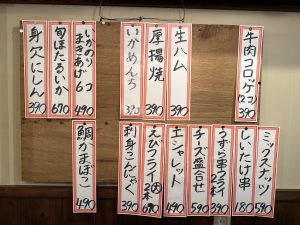 牛肉コロッケ(2コ)
390
生ハム
390
厚揚焼
390
いかめんち
390
いかのり
まきあげ6コ
490
旬ほたるいか
670
身欠にしん
390
ミックスナッツ
590
しいたけ串
180
うずら串フライ
2本
390
チーズ盛合せ
590
エシャレット
490
えびフライ
2本
690
刺身こんにゃく
390
鯛かまぼこ
490